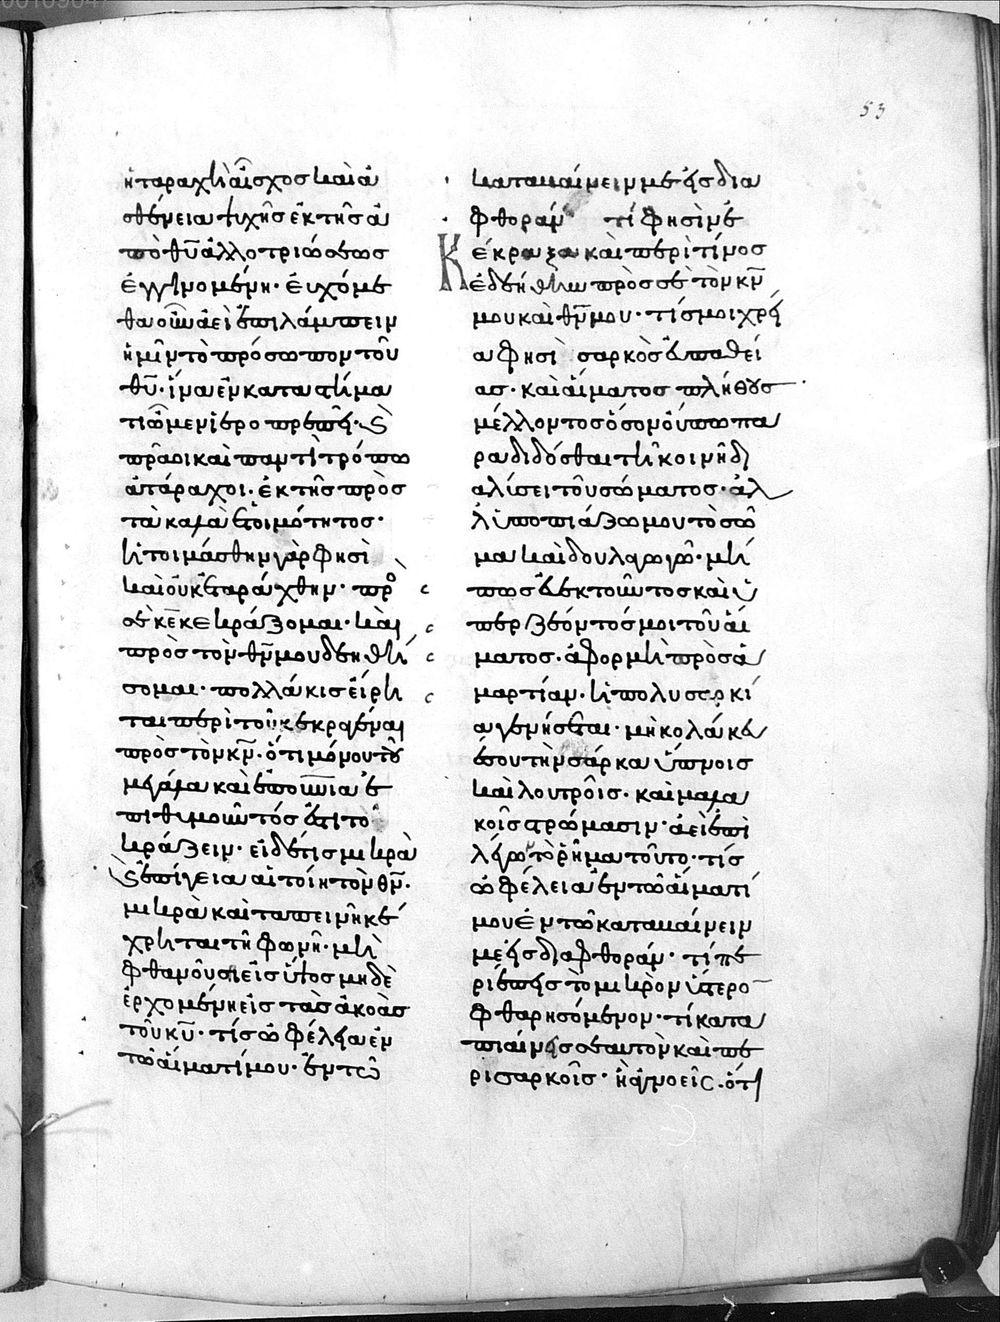 53
ἡ ταραχὴ αἶσχος καὶ ἀ
σθένεια ψυχῆς ἐκ τῆς ἀ
πὸ θυ ἀλλοτριώσεως
ἐγγινομένη· εὐχόμε
θα οὖν ἀεὶ ἐπιλάμπειν
ἡμῖν τὸ πρόσωπον τοῦ
θυ· ἵνα ἐν καταστήμα
τι ὦμεν ἱεροπρεπεῖ·
πρᾶοι καὶ παντὶ τρόπω
ἀτάραχοι· ἐκ τῆς πρὸς
τὰ καλὰ ἑτοιμότητος·
ἡτοιμάσθην γὰρ φησὶ
καὶ οὐκ ἐταράχθην· πρὸ
σὲ κε κεκράξομαι· καὶ
πρὸς τὸν θν μου δεηθή
σομαι· πολλάκις εἴρη
ται περὶ τοῦ κεκραγέναι
πρὸς τὸν κν· ὅτι μόνου τοῦ
μεγάλα καὶ ἐπουράνια ἐ
πιθυμοῦντός ἐστι τὸ
κράζειν· εἰ δέ τις μικρὰ
ἐπίγεια αἰτοίη τὸν θν·
μικρᾶ καὶ ταπεινῆ κέ
χρηται τῆ φωνῆ· μὴ
φθανούση εἰς ὕψος μηδὲ
ἐρχομένη εἰς τὰς ἀκοὰς
τοῦ κυ· τίς ὠφέλεια ἐν
τῶ αἵματί μου· ἐν τῶ
καταβαίνειν με εἰς δια
φθοράν τί φησὶ μὲ
Κέκραξα καὶ περὶ τίνος
ἐδεήθην πρὸς σὲ τὸν κν
μου καὶ θν μου· τίς μοι χρεί
α φησὶ σαρκὸς εὐπαθεί
ας· καὶ αἵματος πλήθους·
μέλλοντος ὅσον οὔπω πα
ραδίδοσθαι τῆ κοινῆ δι
αλύσει τοῦ σώματος· ἀλ
λ' ὑποπιάζω μου τὸ σῶ
μα καὶ δουλαγωγῶ· μή
πως εὐεκτοῦντος καὶ ὑ
περζέοντός μοι τοῦ αἵ
ματος· ἀφορμὴ πρὸς ἁ
μαρτίαν· ἡ πολυσαρκί
α γενήσεται· μὴ κολάκευ
ε σου τὴν σάρκα ὕπνοις
καὶ λουτροῖς· καὶ μαλα
κοῖς στρώμασιν· ἀεὶ ἐπι
λέγω τὸ ῥῆμα τοῦτο· τίς
ὠφέλεια ἐν τῶ αἵματί
μου ἐν τῶ καταβαίνειν
με εἰς διαφθοράν· τί πε
ριέπεις τὸ μικρὸν ὕστερο
φθαρησόμενον· τί κατα
πιαίνεις σεαυτὸν καὶ πε
ρισαρκοῖς· ἢ ἀγνοεῖς· ὅτι